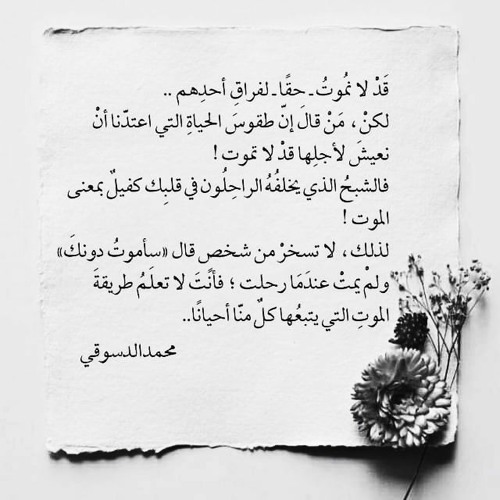 قَدْ لا نمُوتُ ـ حقًا ـ لفراقِ أحدِهم ..
لكنْ ، مَنْ قالَ إنّ طقوسَ الحياةِ التي اعتدّنا أنْ
نعيشَ لأجلِها قدْ لا تموت !
فالشبحُ الذي يخلفُهُ الراحِلُون في قلبِك كفيلٌ بمعنى
الموت !
لذلك ، لا تسخرْ من شخصٍ قال «سأموتُ دونكَ»
ولمْ يمتْ عندَمَا رحلت ؛ فأنَتَ لا تعلَمُ طريقةَ
الموتِ التي يتبعُها كلٌ منّا أحيانًا..
محمدالدسوقي